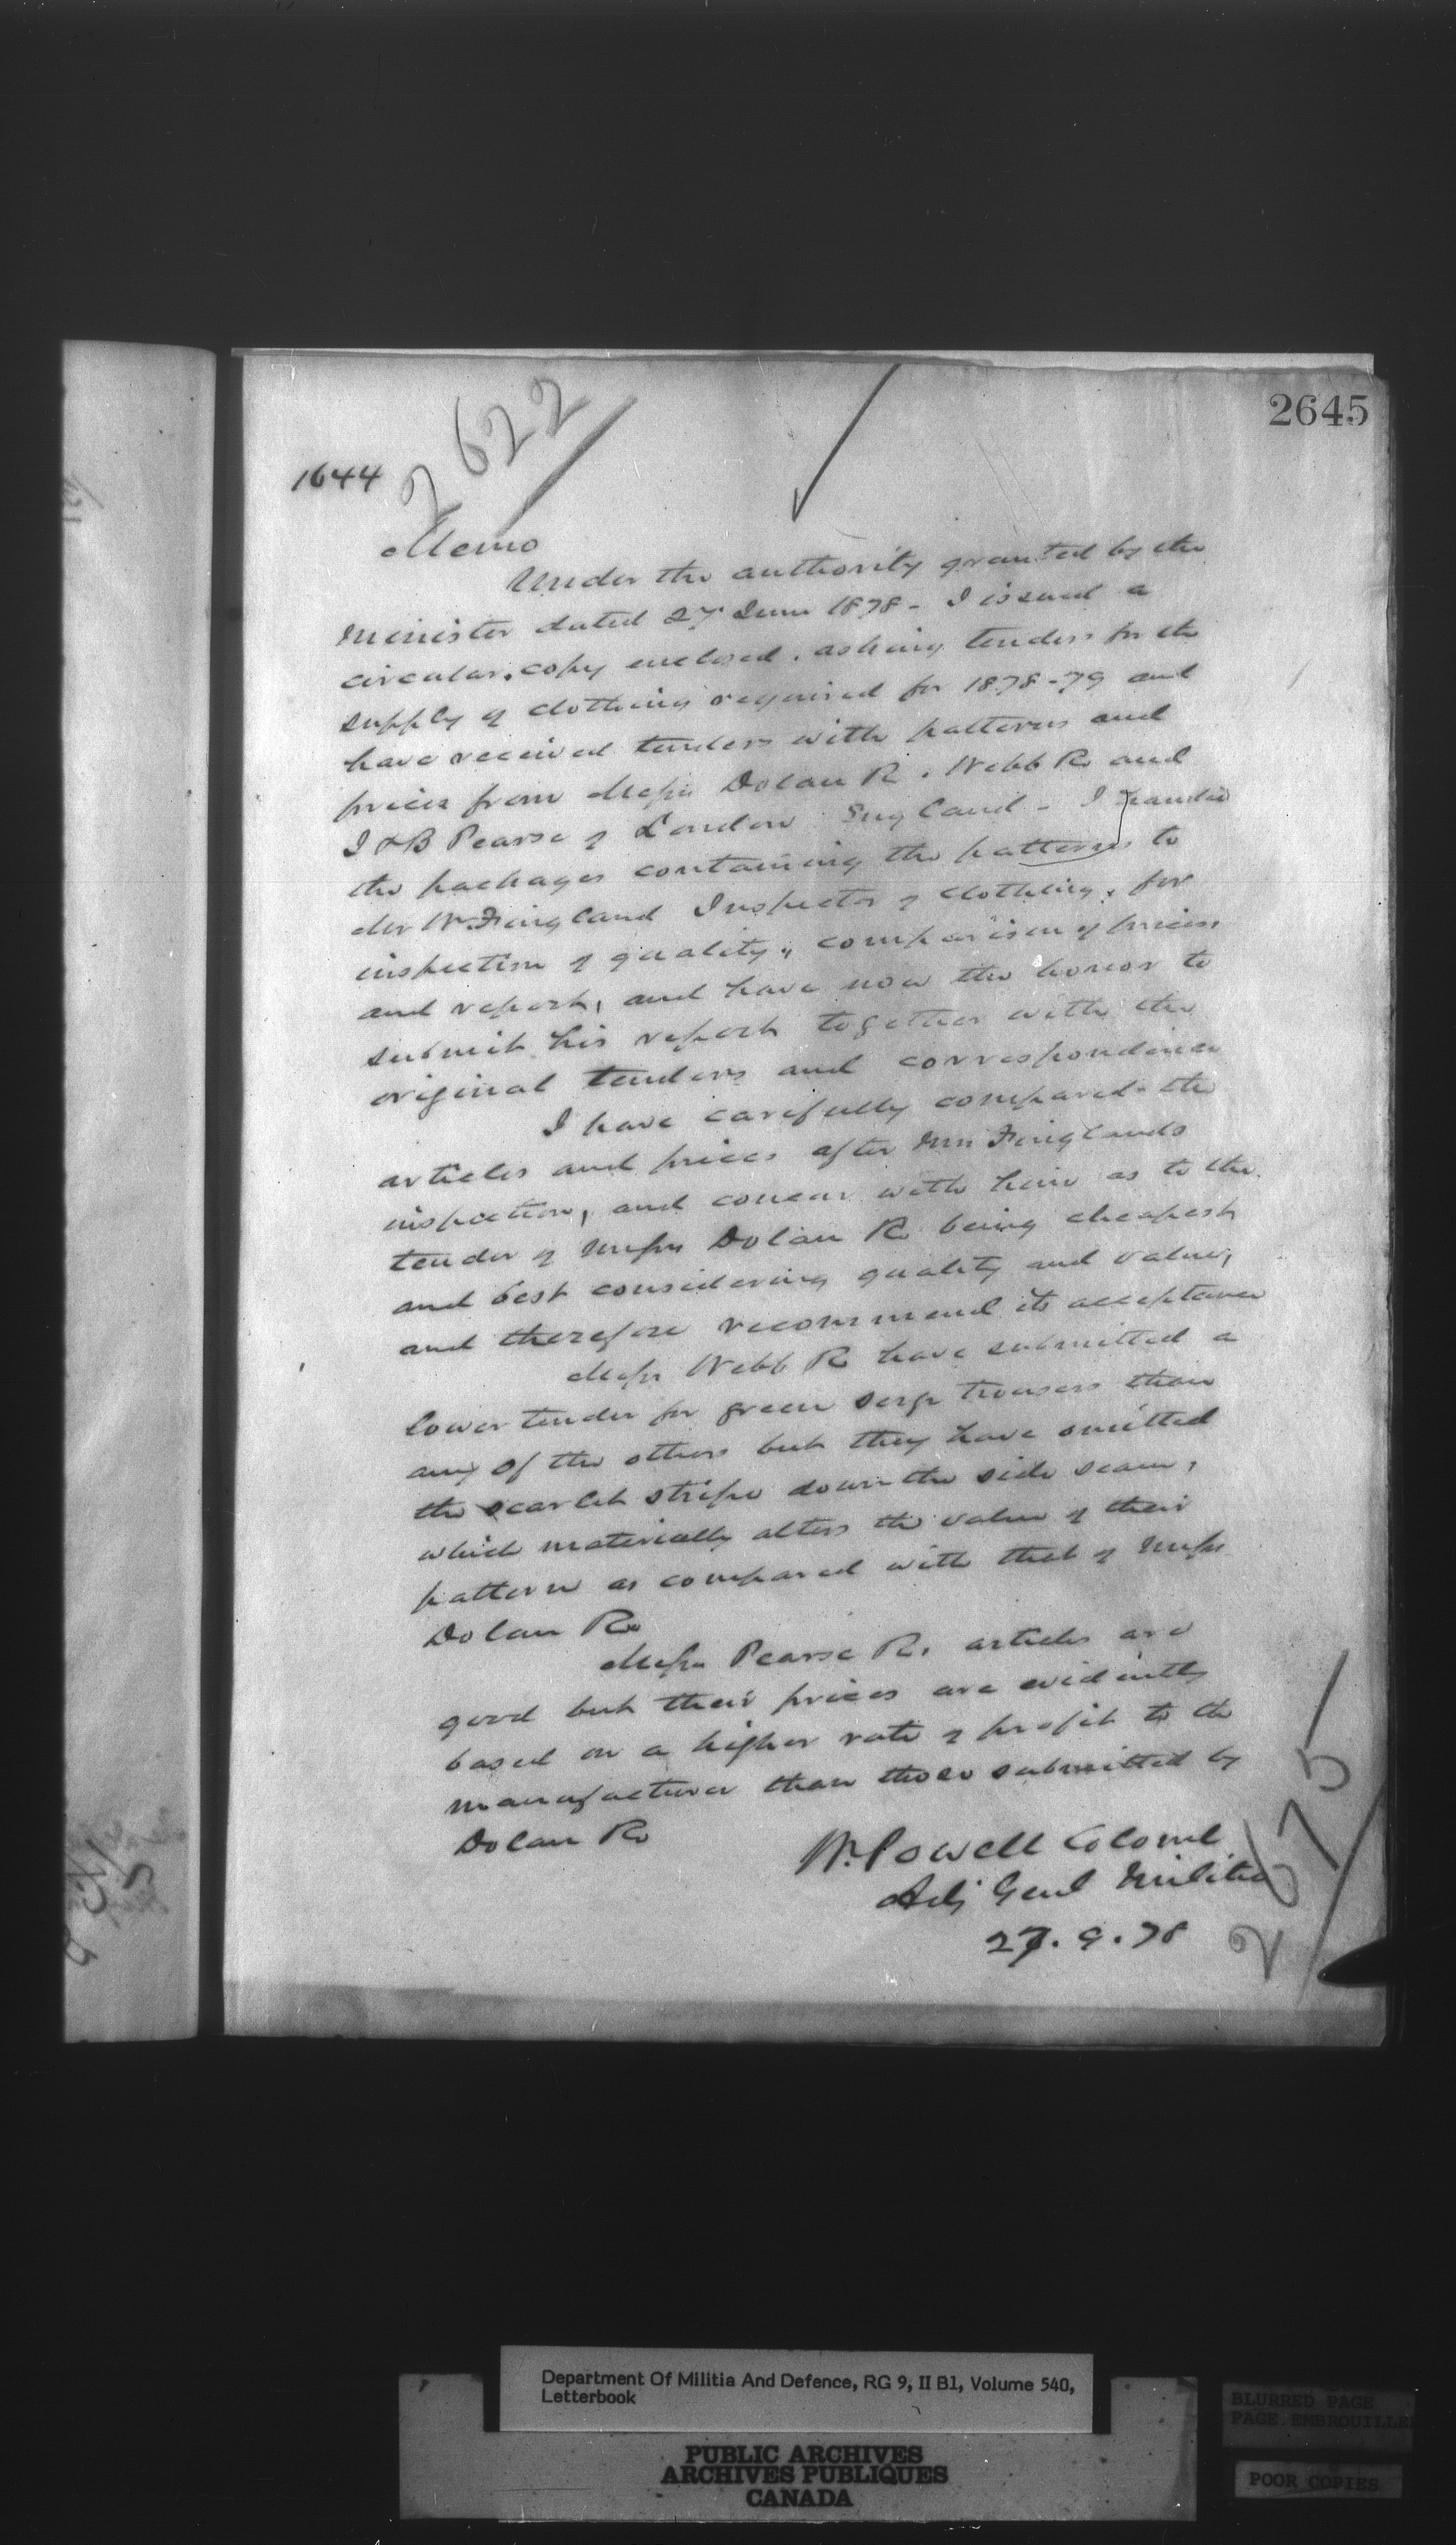 2645
2622
1644
Memo
Under the authority granted by the
Minister dated 27 June 1878 - I issued a
circular, copy enclosed, asking tenders for the
supply of clothing required for 1878-79 and
have received tenders with patterns and
prices from Messrs Dolan & Co. Webb & Co and
I & B Pearse of London England - I handed
the packages containing the patterns to
Mr W. Fingland Inspector of clothing, for
inspection of quality, comparison of prices,
and report, and have now the honor to
submit his report together with the
original tenders and correspondence
I have carefully compared the
articles and prices after Mr Finglands
inspection, and concur with him as to the
tender of Messrs Dolan & Co being cheapest
and best considering quality and value,
and therefore recommend its acceptance
Messrs Webb & Co have submitted a
lower tender for green serge trousers than
any of the others but they have omitted
the scarlet stripe down the side seam,
which materially alters the value of their
pattern as compared with that of Messrs
Dolan & Co
Messrs Pearse & Co. articles are
good but their prices are evidently
based on a higher rate of profit to the
manufacturer than those submitted by
Dolan & Co
W. Powell Colonel
Adj Genl Militia
27. 9. 78
2675
Department Of Militia And Defence, RG 9, II B1, Volume 540,
Letterbook
PUBLIC ARCHIVES
ARCHIVES PUBLIQUES
CANADA
BLURRED PAGE
PAGE EMBROUILLEE
POOR COPIES